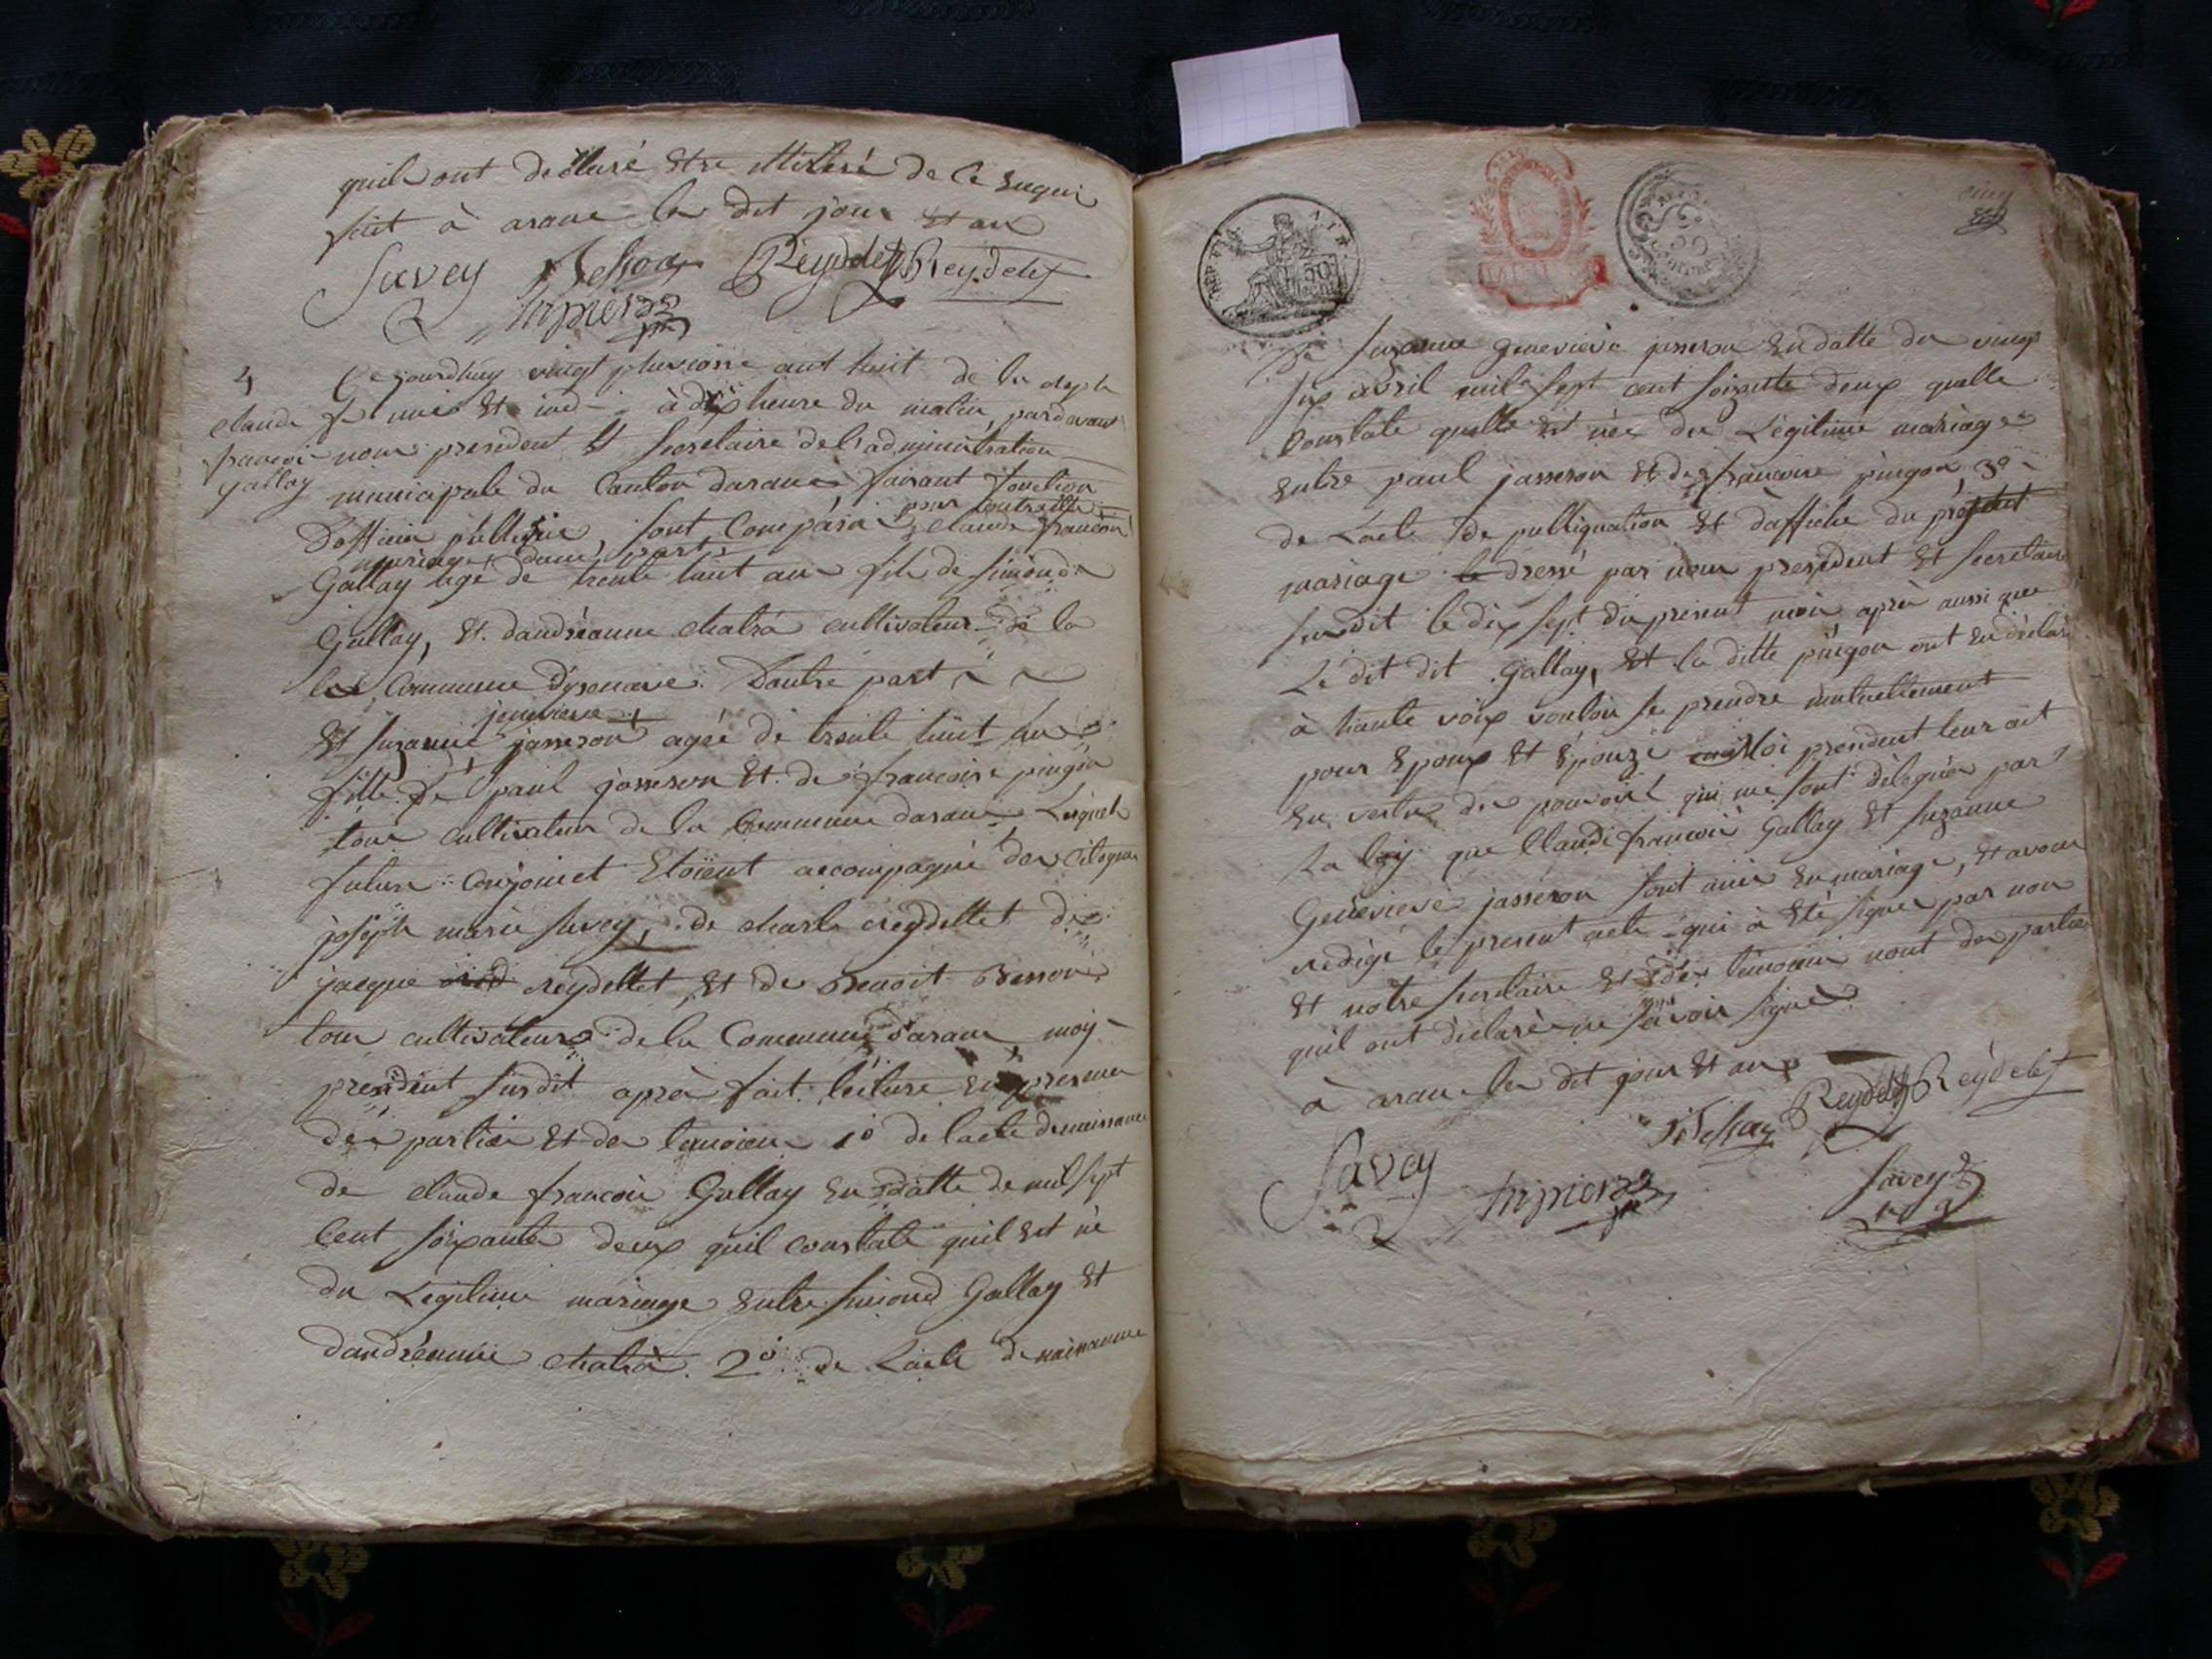 quil ont declaré Etre illitéré de ce Enqui
fait à arane les dit jour et an
Savey Besson Reydellet Reydelet
4 Ce jourdhuy vingt pluviosse ant huit de la
claude f nuis et ind - à dix heure du matin, pardevant
francoi nous president Et Secretaire de l'administration
gallay municipale du Canton daranc faisant fonction
Dofficier publique, sont Comparu pour contracter claude francoi
mariage dune part
Gallay agé de trente huit ans fils de Simond
Gallay, Et. dandréanne chatrà cultivateur de la
Commune Dizenave. Dautre part
jenevieve
Et suzanne jasseron agée de trente huit ans
fille de paul jasseron Et. de francoise pingon
tous cultivateur de la Commune daranc Lesquels
futurs Conjoinct Etoient accompagné des citoyens
joseph marie Savey, de charle reydellet de
jacque reydellet, Et de Benoit Besson
tous cultivateurs de la Commune d'aranc moy
president susdit après fait lecture En presence
des parties Et des temoiens 1° de lacte de naissance
de claude francois Gallay En datte de mil sept
Cent soixante deux quil constate quil Est né
du Legitime mariage Entre simond Gallay Et
dandréanne chatrà. 2° de Lacte de naissance
de suzanne genevieve jasseron En datte du vingt
six avril mil sept cent soixante deux quelle
Constate quelle Est née du Légitime mariage
Entre paul jasseron Et de francoise pingon 3°
de Lacte de publiquation Et d'affiche du présent
mariage dressé par nous president Et secretaire
susdit le dix sept du present mois après aussi que
Le dit dit Gallay, Et la ditte pingon ont En déclaré
à haute voix vouloir se prendre mutuellement
pour Epoux Et Épouze
En vertu des pouvoirs qui me sont délégués par
La loy que Claude francois Gallay Et suzanne
Genevieve jasseron sont unis En mariage, Et avons
redigé le present acte qui à Eté signé par nous
Et notre secretaire Et des temoins nont des parties
quil ont déclaré ne savoir signé
à arane les dit jour Et an
Savey Besson Reydellet Reydelet
Savey